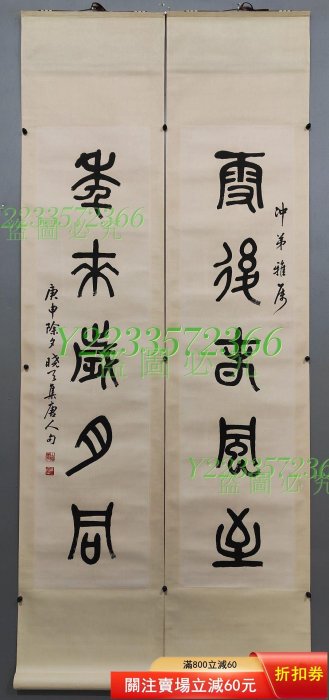 冲弟雅属
雪後春風至
年來歲月同
庚申除夕曉集唐人句
Y2233572366
盜圖必究
Y2233572366
盜圖必究
Y2233572366
盜圖必究
滿800立減60
關注賣場立減60元
折扣券